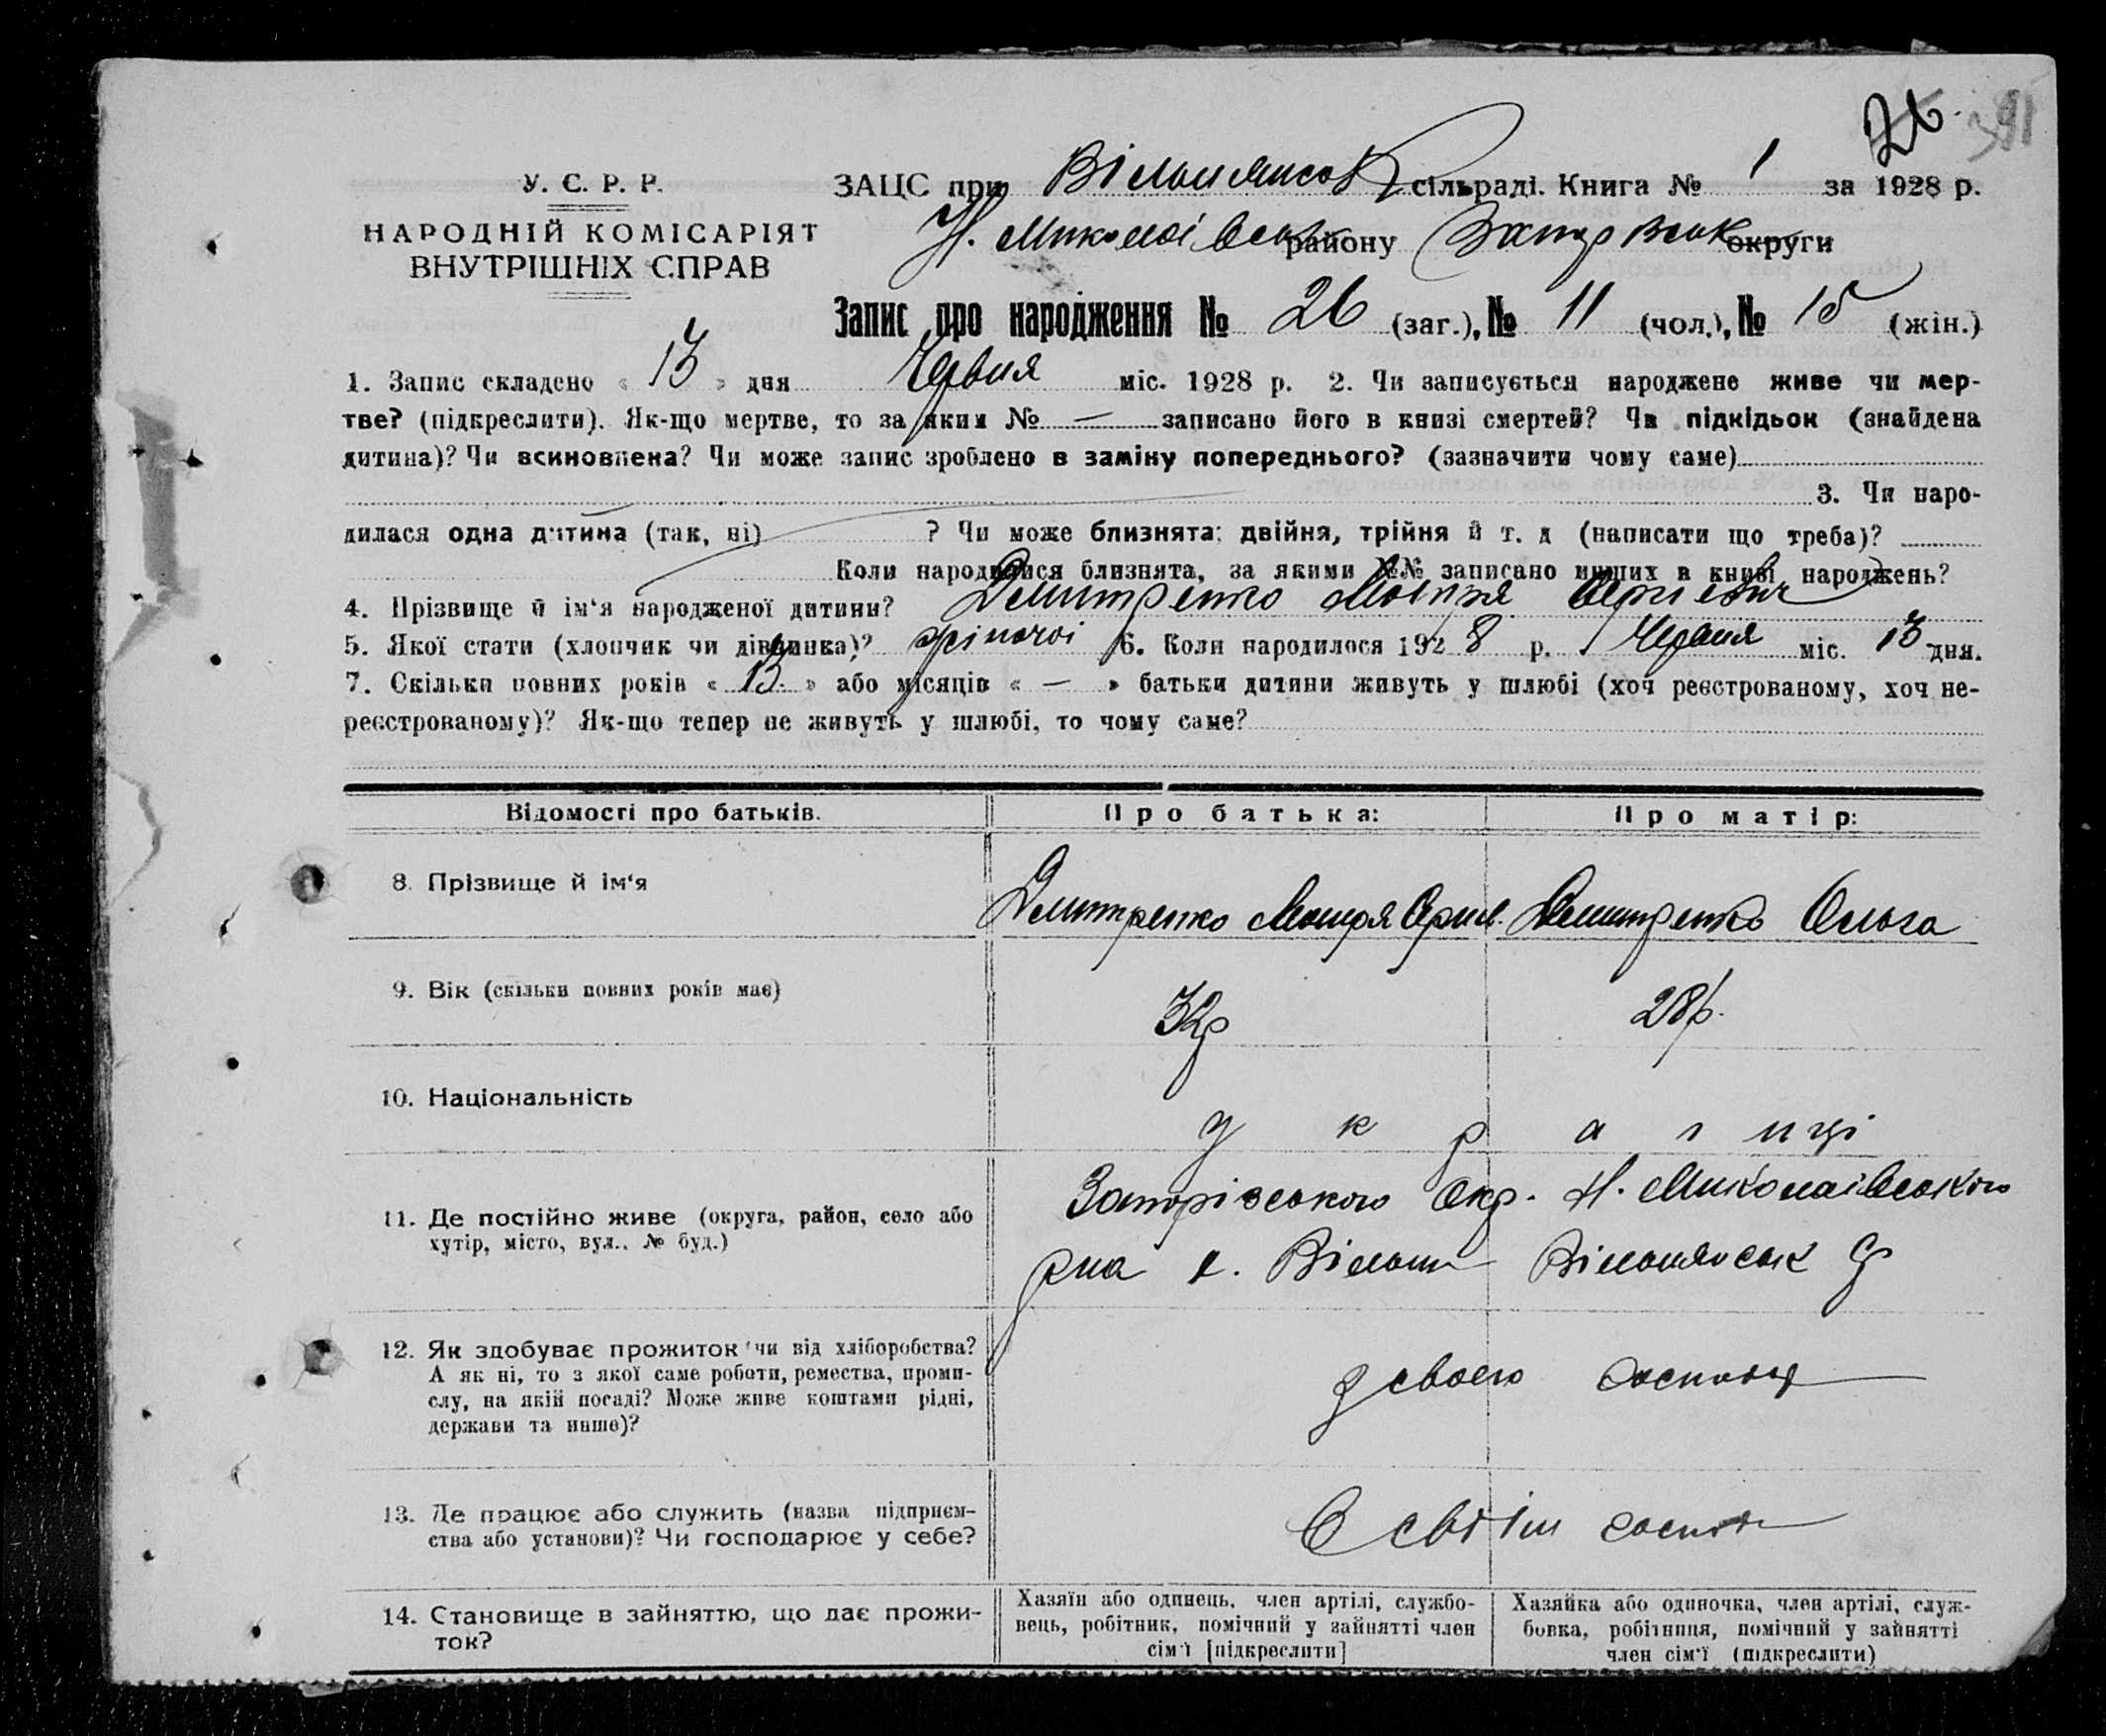 26. 391
У. С. Р. Р.
НАРОДНІЙ КОМІСАРІЯТ
ВНУТРІШНІХ СПРАВ
ЗАЦС при сільраді. Книга № 1 за 1928 р.
Н. Миколаївськ району округи
Запис про народження № 26 (заг.), № 11 (чол.), № 15 (жін.)
1. Запис складено « 13 » дня Червня міс. 1928 р. 2. Чи записується народжене живе чи мер-
тве? (підкреслити). Як-що мертве, то за яким № — записано його в книзі смертей? Чи підкідьок (знайдена
дитина)? Чи всиновлена? Чи може запис зроблено в заміну попереднього? (зазначити чому саме)
3. Чи наро-
дилася одна дитина (так, ні) ? Чи може близнята: двійня, трійня й т. д (написати що треба)?
Коли народилися близнята, за якими №№ записано инших в книзі народжень?
4. Прізвище й ім‘я народженої дитини? Дмитренко
5. Якої стати (хлопчик чи дівчинка)? жіночої 6. Коли народилося 1928 р. Червня міс. 13 дня.
7. Скільки повних років « 13 » або місяців « — » батьки дитини живуть у шлюбі (хоч реєстрованому, хоч не-
реєстрованому)? Як-що тепер не живуть у шлюбі, то чому саме?
Відомості про батьків. Про батька: Про матір:
8. Прізвище й ім‘я Дмитренко Дмитренко Ольга
9. Вік (скільки повних років має) 32р 28р.
10. Національність україн­ці
11. Де постійно живе (округа, район, село або
хутір, місто, вул., № буд.)
Запорізського Окр. Н. Миколаївського
рна
12. Як здобуває прожиток чи від хліборобства?
А як ні, то з якої саме роботи, ремества, проми-
слу, на якій посаді? Може живе коштами рідні,
держави та инше)?
з своего
13. Де працює або служить (назва підприєм-
ства або установи)? Чи господарює у себе?
В своім
14. Становище в зайняттю, що дає прожи-
ток?
Хазяїн або одинець, член артілі, службо-
вець, робітник, помічний у зайнятті член
сім‘ї [підкреслити]
Хазяйка або одиночка, член артілі, служ-
бовка, робітниця, помічний у зайнятті
член сім‘ї (підкреслити)